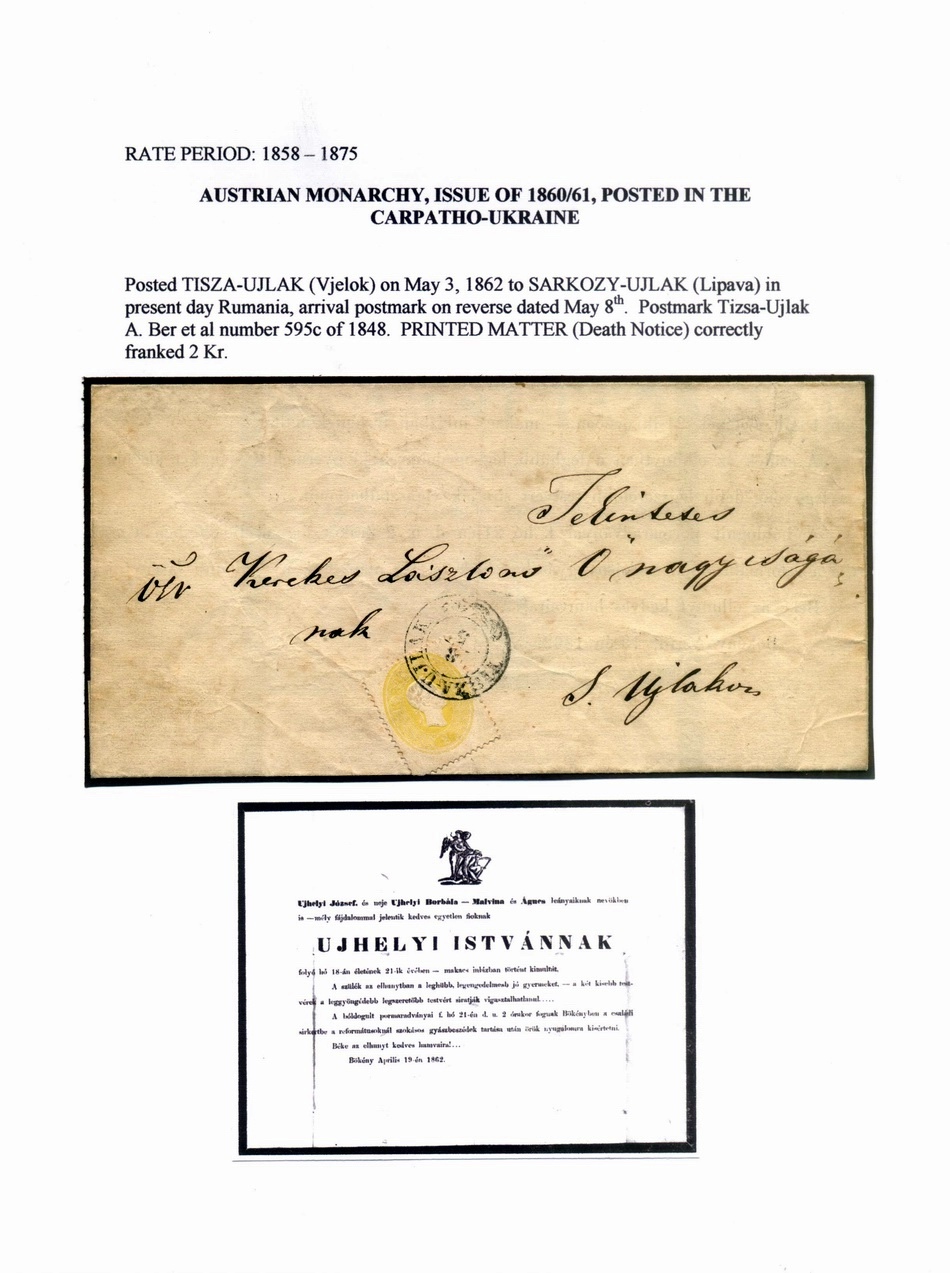 RATE PERIOD: 1858 – 1875
AUSTRIAN MONARCHY, ISSUE OF 1860/61, POSTED IN THE
CARPATHO-UKRAINE
Posted TISZA-UJLAK (Vjelok) on May 3, 1862 to SARKOZY-UJLAK (Lipava) in
present day Rumania, arrival postmark on reverse dated May 8th. Postmark Tizsa-Ujlak
A. Ber et al number 595c of 1848. PRINTED MATTER (Death Notice) correctly
franked 2 Kr.
Tekintetes
Kerekes Lászlónő Ő nagyságá
nak
TISZA-UJLAK
S. Ujlakon
Ujhelyi József, és neje Ujhelyi Borbála — Malvina és Ágnes leányaiknak nevökben
is — mély fájdalommal jelentik kedves egyetlen fioknak
UJHELYI ISTVÁNNAK
folyó hó 18-án életének 21-ik évében — makacs inlázban történt kimultát.
A szülők az elhunytban a leghűbb, legengedelmesb jó gyermeket, — a két kisebb test-
vérek a leggyöngédebb legszeretőbb testvért siratják vigasztalhatlanul.....
A boldogult pormaradványai f. hó 21-én d. u. 2 órakor fognak Bökényben a családi
sirkertbe a reformátusoknál szokásos gyászbeszédek tartása után örök nyugalomra kisértetni.
Béke az elhunyt kedves hamvaira!...
Bökény Április 19-én 1862.